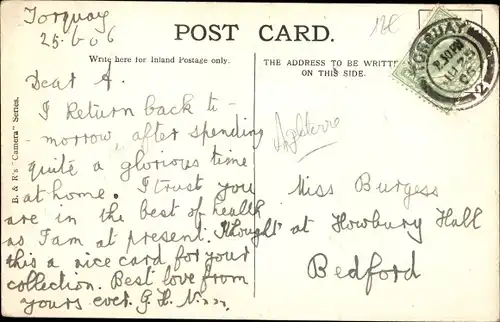 Torquay
25.6.06
POST CARD.
Write here for Inland Postage only.
THE ADDRESS TO BE WRITTEN
ON THIS SIDE.
B. & R's "Camera" Series.
TORQUAY
2
12€
Dear A.
I Return back to-
morrow, after spending
quite a glorious time
at home. I trust you
are in the best of health
as I am at present. I thought
this a nice card for your
collection. Best love from
yours ever. G. H.
Angleterre
Miss Burgess
at Howbury Hall
Bedford